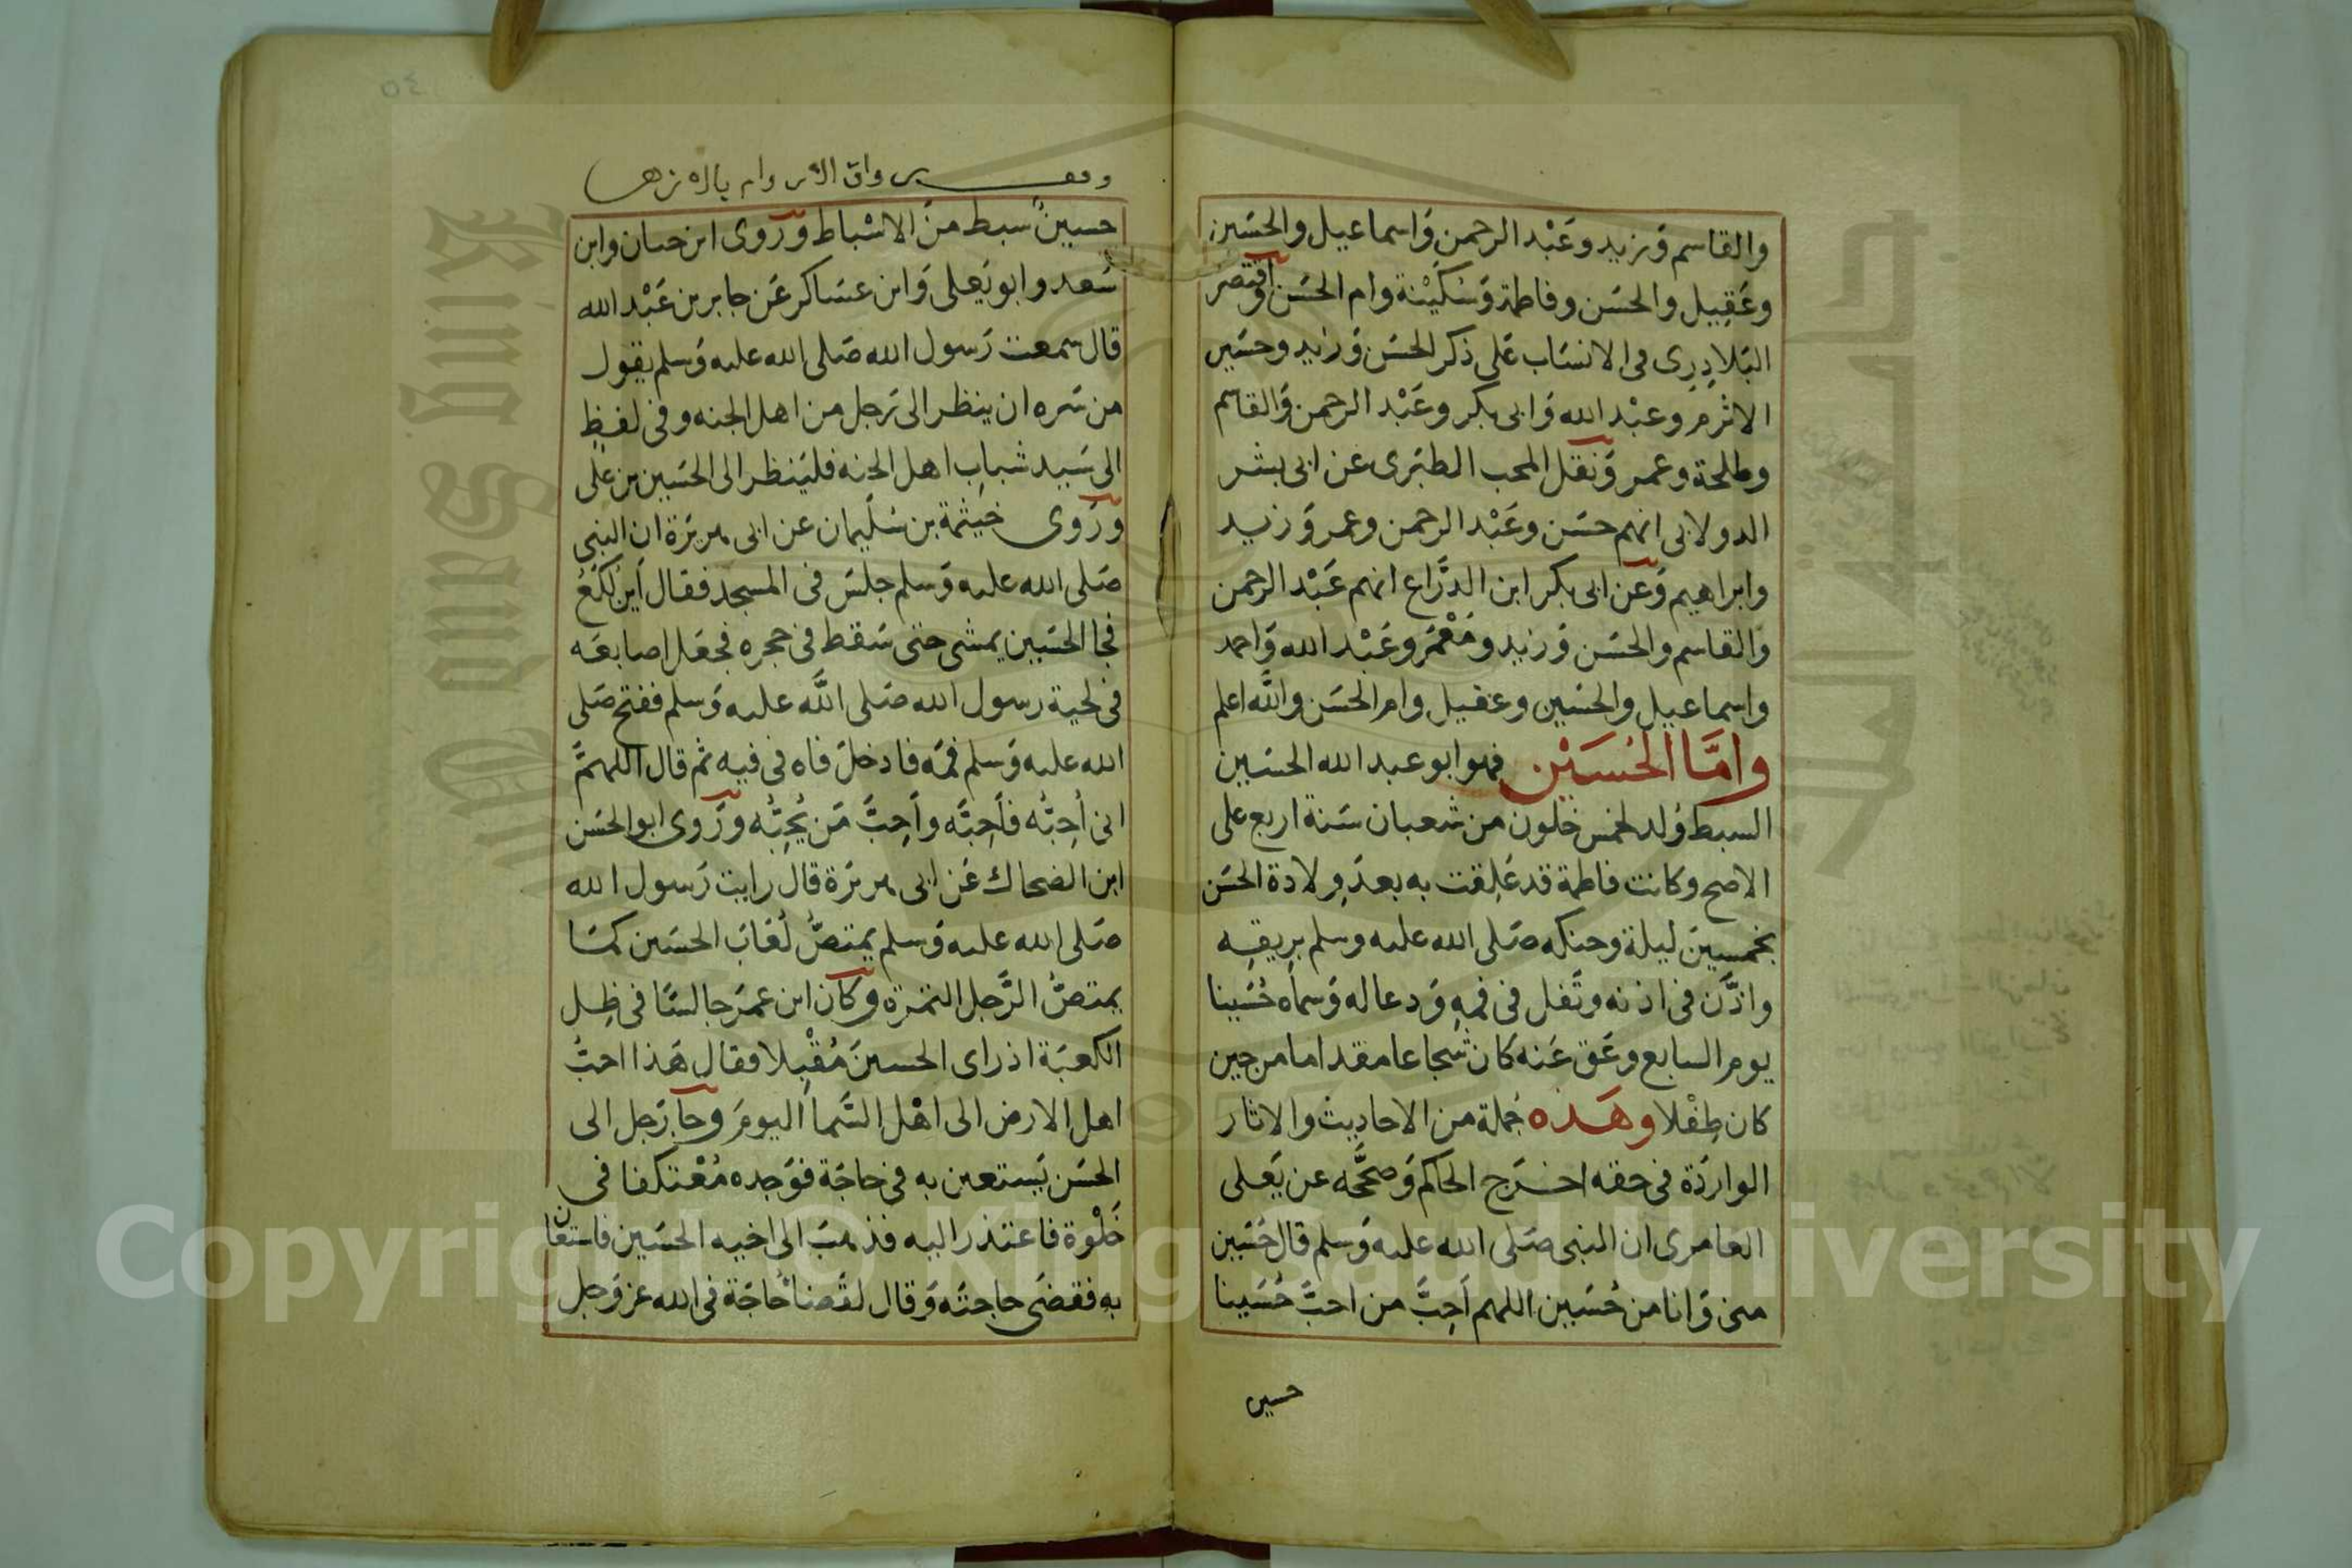 والقاسم وَزيد وعَبْد الرحمن وَاسماعيل والحسَين
وعَقِيل والحسَن وفاطمة وَسُكَيْنة وام الحسَن واقتصر
البَلاذِرى فى الانسَاب عَلى ذكر الحسَن وَزيد وحسَين
الاثرم وعبْد الله وَابى بكر وعَبْد الرحمن وَالقاسم
وطلحة وعمر وَنقل المحب الطبَرى عَن ابى بشر
الدولابى انهم حسَن وعَبْد الرحمن وعمر وَزيد
وابراهيم وَعن ابى بكر ابن الدرَّاع انهم عَبْد الرحمن
وَالقاسم والحسَن وَزيد ومَعْمَر وعَبْد الله وَاحمد
واسماعيل والحسَين وعقيل وام الحسَن واللَّه اعلم
وامَّا الحُسَيْن فهو ابو عبد الله الحسَين
السبط وُلد لخمس خلون من شعبان سَنة اربع على
الاصح وكانت فاطمة قد عَلِقت به بعدَ وِلادة الحسَن
بخمسين ليلة وحنكه صَلى الله عليه وسلم بريقِه
واذَّن فى اذنه وتَفل فى فمِهِ وَدعا له وَسماه حُسَينا
يوم السابع وعَق عَنه كان شجاعا مقداما من حين
كان طِفْلا وهَذه جُملة من الاحاديث والاثار
الوارَدة فى حقه اخرَج الحاكم وَصحَّحَه عن يَعلى
العامرى ان النبى صَلى الله عليه وَسلم قال حُسَين
منى وَانا من حُسَين اللهم اَحِبَّ من احبَّ حُسَينا
حسين
حسينٌ سبط منَ الاسْباط ورَوى ابن حبان وابن
سَعد وابو يَعلى وَابن عسَاكر عَن جابر بن عَبْد الله
قال سمعت رَسول الله صَلى الله عليه وَسلم يقول
من سَره ان ينظر الى رَجل من اهل الجنه وفى لفظٍ
الى سَيد شبابِ اهل الجنه فليَنظر الى الحسَين بن عَلى
ورَوى خيثمة بن سُليمان عن ابى هريرَة ان النبى
صَلى الله عليه وَسلم جلسَ فى المسجد فقال اَين لُكَعُ
فجا الحسَين يمشى حتى سَقط فى حجره فجعَل اصابعَه
فى لحية رسول الله صَلى اللَّه عليه وَسلم ففتح صَلى
الله عليه وَسلم فمَه فادخلَ فاه فى فيه ثم قال اللهمَّ
انى اُحِبّه فاَحِبَّه واَحِبَّ مَن يُحِبُّه ورَوى ابو الحسَن
ابن الضحاك عَن ابى هريرَة قال رايت رَسول الله
صَلى الله عليه وَسلم يمتصُّ لُعَابَ الحسَين كمَا
يمتصُّ الرَّجل التمْرَة وكان ابن عمَر جالسًا فى ظِل
الكعبَة اذ راى الحسينَ مُقْبِلا فقال هَذا احبُّ
اهل الارض الى اهْل السَّماءِ اليومَ وجآ رَجل الى
الحسَن يَستعين به فى حاجَة فوَجده مُعْتكفا فى
خَلْوة فاعتذر اليه فذهبَ الى اخيه الحسَين فاستعان
بهِ فقضَى حاجتَه وَقال لقَضآءُ حَاجَة فى الله عز وَجل
Copyright © King Saud University
King Saud